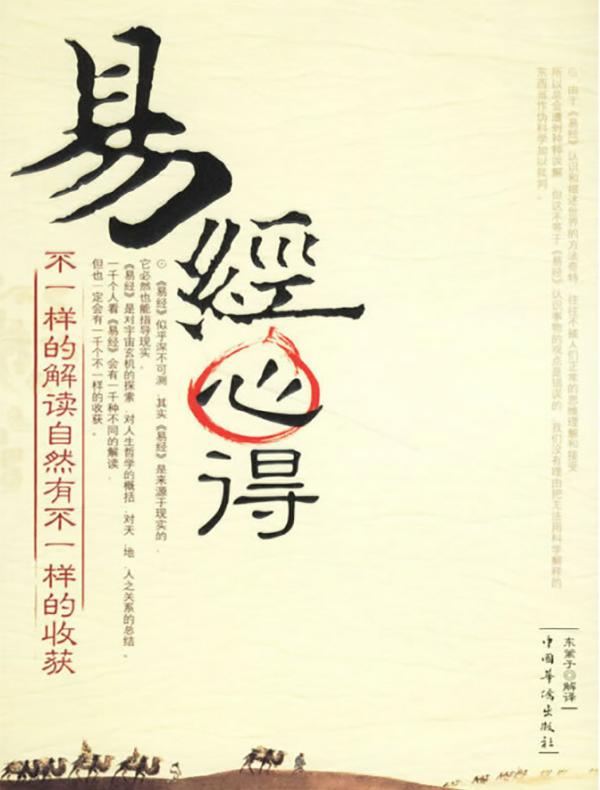 易經心得
⊙ 由于《易经》认识和描述世界的方法奇特，往往不被人们正常的思维理解和接受，
所以总会遭到种种误解，但这不等于《易经》认识事物的观点是错误的，我们没有理由把无法用科学解释的
东西当作伪科学加以批判。
⊙《易经》似乎深不可测，其实《易经》是来源于现实的，
它必然也能指导现实。
《易经》是对宇宙玄机的探索，对人生哲学的概括，对天、地、人之关系的总结。
一千个人看《易经》会有一千种不同的解读，
但也一定会有一千个不一样的收获。
不一样的解读自然有不一样的收获
东篱子◎解译
中国华侨出版社